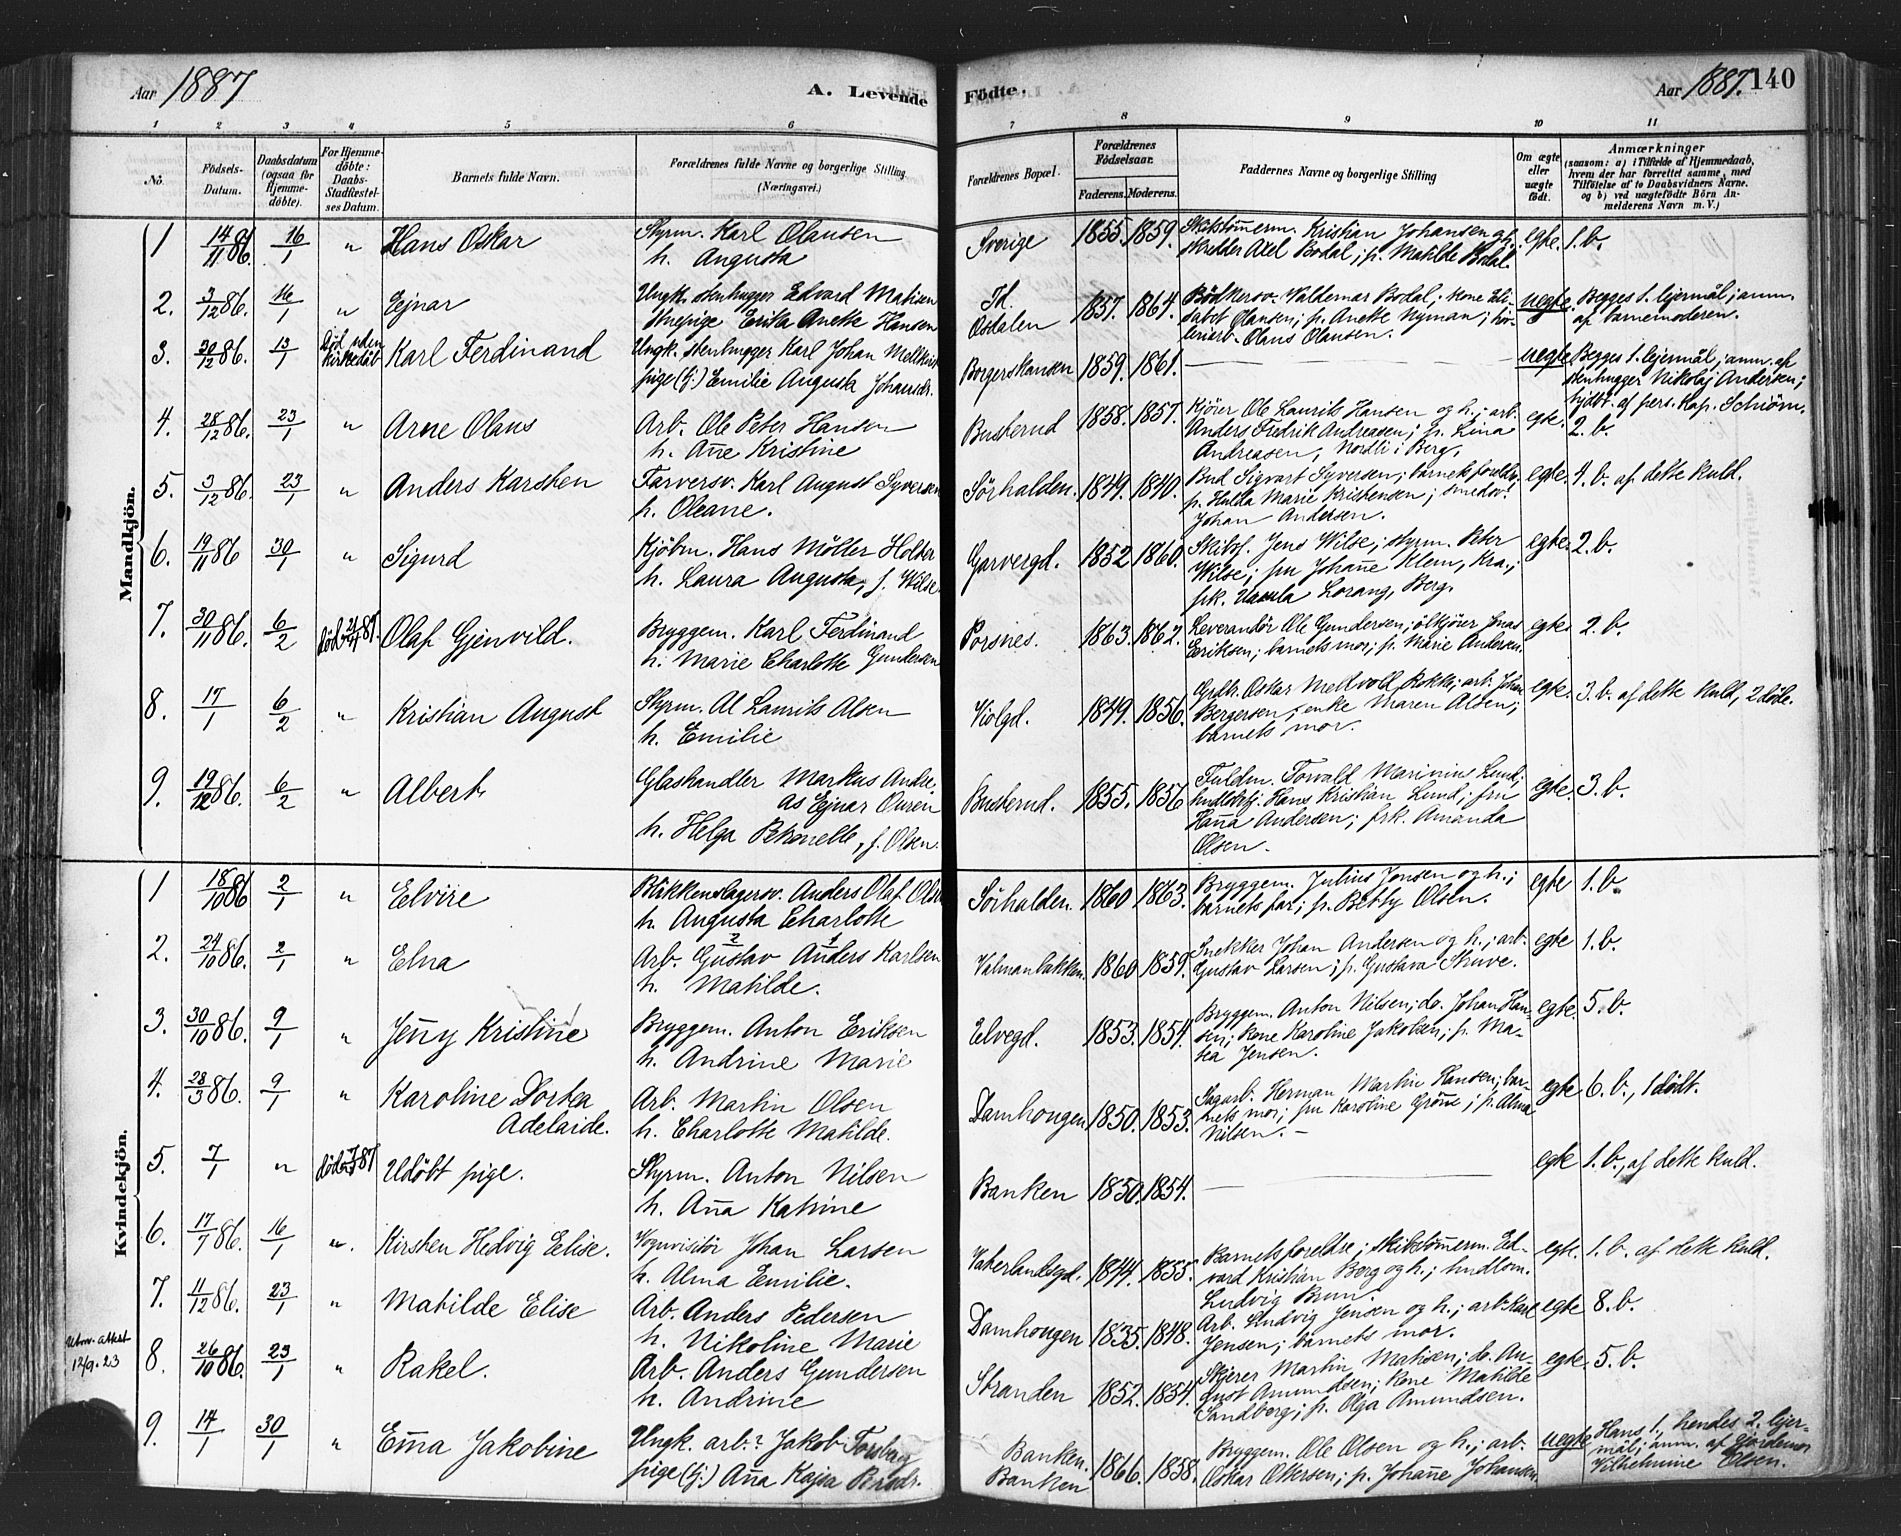 Aar 1887
A. Levende
Födte.
Aar 1887. 140
1 2 3 4 5 6 7 8 9 10 11
No.
Födsels-
Datum.
Daabsdatum
(ogsaa for
Hjemme-
döbte).
For Hjemme-
döbte:
Daabs-
Stadfæstel-
ses Datum.
Barnets fulde Navn.
Forældrenes fulde Navne og borgerlige Stilling
(Næringsvei.)
Forældrenes Bopæl.
Forældrenes
Födselsaar.
Faderens. Moderens.
Faddernes Navne og borgerlige Stilling
Om ægte
eller
uægte
födt.
Anmærkninger
(saasom: a) i Tilfælde af Hjemmedaab,
hvem der har forrettet samme, med
Tilföielse af to Daabsvidners Navne.
og b) ved uægtefödte Börn An-
melderens Navn m. V.)
Mandkjön.
1 14/11 86. 16/1 " Hans Oskar
Styrm. Karl Olausen
h. Augusta
Sverige 1855. 1859.
Skibstømerm. Kristian Johansen og h.
skrædder Axel Bodal; p. Matilde Bodal.
egte. 1. b.
2. 3/12 86. 16/1 " Ejnar
Ungk. stenhugger Edvard Matisen
Enepige Erika Anette Hansen
Td.
Osdalen 1857. 1864.
Bødkersv. Valdemar Bodal; kone Eli-
sabet Olausen; p. Anette Nyman;
Olaus Olausen.
uegte. Begges 1. lejermål; anm.
af barnemoderen.
3. 30/12 86. 13/1 Død uden
kirkedåb Karl Ferdinand
Ungk. stenhugger Karl Johan
pige (tj:) Emilie Augusta Johansdr.
Borgerskansen 1859. 1861.
uegte Begges 1. lejermål; anm. af
stenhugger Nikolaj Andersen;
hjdbt. af pers. Kap. Schiøm.
4. 28/12 86. 23/1 " Arne Olaus
Arb. Ole Peter Hansen
h. Ane Kristine
Buskerud 1858. 1857.
Kjører Ole Laurits Hansen og h.; arb.
Anders Fredrik Andreasen; p. Lina
Andreasen, Nordli i Berg.
egte. 2. b.
5. 3/12 86. 23/1 " Anders Karsten
Farversv. Karl August Syversen
h. Oleane.
Sörhalden. 1849. 1840.
Bud Sigvart Syversen; barnets foreldre
p. Hulda Marie Kristensen; smedsv.
Johan Andersen.
egte. 4. b. af dette kuld.
6. 19/11 86 30/1 " Sigurd
Kjøbm. Hans Möller Holter
h. Laura Augusta, f. Wilse
Garvergd. 1852 1860.
Skibsf. Jens Wilse; styrm. Peter
Wilse; fru Johane Klem, Kra.;
frk. Lorang, Berg.
egte. 2. b.
7. 30/11 86. 6/2 død 87. Olaf Gjenvild.
Bryggem. Karl Ferdinand
h. Marie Charlotte Gundersen
Porsnes. 1863. 1862.
Leverandör Ole Gundersen; ölkjörer Jonas
Eriksen; barnets mor; p. Marie Andersen.
egte. 2. b.
8. 17/1 6/2 " Kristian August
Styrm. Al Laurits Alsen
h. Emilie
Violgd. 1849. 1856.
Grdbr. Oskar Rokke; arb. Johan
Bergersen; enke Maren Alsen;
barnets mor.
egte. 3. b. af dette kuld, 2 döde.
9. 19/12 86. 6/2 " Albert
Glashandler Markus Andre-
as Ejnar Ouren
h. Helga Petronelle, f. Olsen.
Buskerud. 1855. 1856
Fuldm. Torvald Marinius Lund;
Hans Kristian Lund; fru
Hana Andersen; frk. Amanda
Olsen.
egte. 3. b.
Kvindekjön.
1 18/10 86 2/1 " Elvire
Blikkenslagersv. Anders Olaf Olsen
h. Augusta Charlotte
Sörhalden. 1860 1863.
Bryggem. Julius Jonsen og h.;
barnets far; p. Betty Olsen.
egte 1. b.
2. 24/10 86. 2/1 " Elna
2 1
Arb. Gustav Anders Karlsen
h. Matilde.
Valmanbakken. 1860 1859.
Snekker Johan Andersen og h.; arb.
Gustav Larsen; p. Gustava Struve.
egte 1. b.
3. 30/10 86. 9/1 " Jeny Kristine
Bryggem. Anton Eriksen
h. Andrine Marie
Elvegd. 1853. 1854.
Bryggem. Anton Nilsen; do. Johan Han-
sen; kone Karoline Jakobsen; p. Ma-
tea Jensen.
egte. 5. b.
4. 28/3 86. 9/1 " Karoline Dortea
Adelaide.
Arb. Martin Olsen
h. Charlotte Matilde.
Damhougen 1850. 1853.
Sagarb. Herman Martin Hansen; bar-
nets mor; fru Karoline Gröne; p. Alma
Nilsen. –
egte 6. b., 1 dödt.
5. 7/1 " død 7/1 87 Udöbt pige.
Styrm. Anton Nilsen
h. Ana Katrine
Banken 1850. 1854.
egte 1. b., af dette kuld.
6. 17/7 86. 16/1 " Kirsten Hedvig Elise.
Vognvisitör Johan Larsen
h. Alma Emilie.
Vaterlandsgd. 1844. 1855.
Barnets foreldre; skibstømerm. Ed-
vard Kristian Berg og h.;
Ludvig Brun.
egte. 1. b. af dette kuld.
7. 11/12 86. 23/1 " Matilde Elise
Arb. Anders Pedersen
h. Nikoline Marie
Damhougen 1835. 1848.
Arb. Ludvig Jensen og h.; arb. Karl
Jensen; barnets mor.
egte 8. b.
Utsn. attest
12/9. 23
8. 26/10 86. 23/1 " Rakel.
Arb. Anders Gundersen
h. Andrine
Stranden 1852. 1854.
Skjerer Martin Matisen; do. Au-
gust Amundsen; kone Matilde
Sandberg; p. Olga Amundsen.
egte. 5. b.
9. 14/1 30/1 " Ema Jakobine
Ungk. arb.? Jakob
pige (tj:) Ana Kajsa
Banken.
Banken 1866. 1858.
Bryggem. Ole Olsen og h.; arb.
Oskar Ottersen; p. Johane Johansen
uegte Hans 1., hendes 2. lejer-
mål; anm. af jordemor
Vilhelmine Olsen.